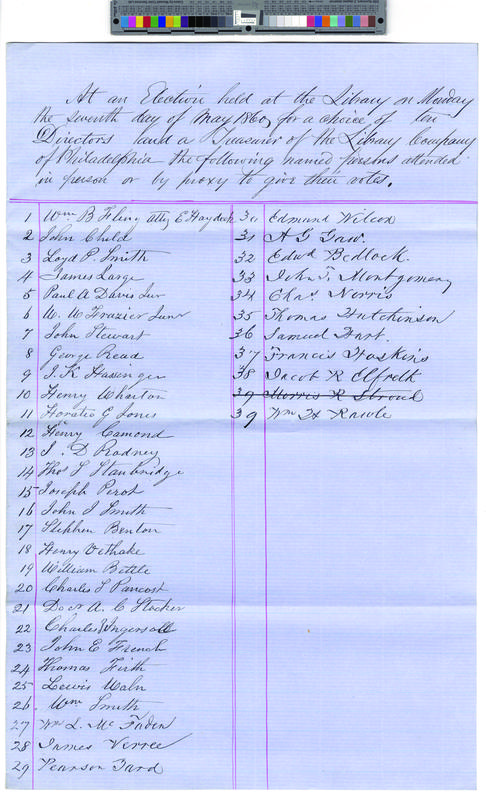 At an Election held at the Library on Monday
the seventh day of May 1860, for a choice of ten
Directors and a Treasurer of the Library Company
of Philadelphia the following named persons attended
in person or by proxy to give their votes.
1 Wm B Fling atty E Haydock
2 John Child
3 Loyd P. Smith
4 James Large
5 Paul A Davis Junr
6 W. W Frazier Junr
7 John Stewart
8 George Read
9 J. K Hassinger
10 Henry Wharton
11 Horatio G Jones
12 Henry Camond
13 J. D Rodney
14 Thos S Stanbridge
15 Joseph Perot
16 John J Smith
17 Stephen Benton
18 Henry Vethake
19 William Bettle
20 Charles S Pancost
21 Docr A. C Stocker
22 Charles Ingersoll
23 John E French
24 Thomas Firth
25 Lewis Waln
26. Wm Smith
27 Wm L. Mc Faden
28 James Verree
29 Pearson Yard
30 Edmund Wilcox
31 A G Gaw.
32 Edwd Bedlock.
33 John T. Montgomery
34 Chas Norris
35 Thomas Hutchinson
36 Samuel Hart.
37 Francis Hoskins
38 Jacob R Elfreth
39 Morris R Stroud
39 Wm H Rawle